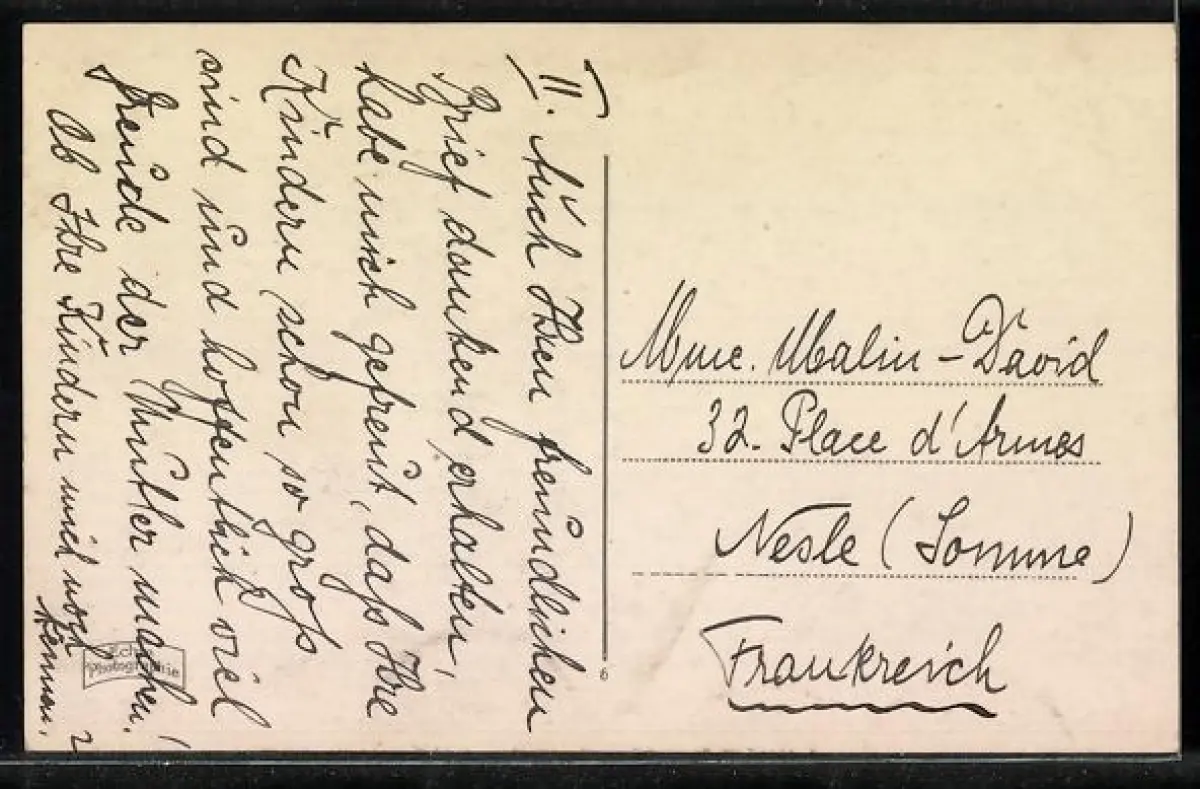 II. Auch Ihren freundlichen
Brief dankend erhalten,
habe mich gefreut, dass Ihre
Kindern schon so gross
sind und hoffentlich viel
Freude der Mutter machen!
Ob Ihre Kindern mich noch
können.
Mme. Malin-David
32. Place d'Armes
Nesle (Somme)
Frankreich
Echte
Photographie
6